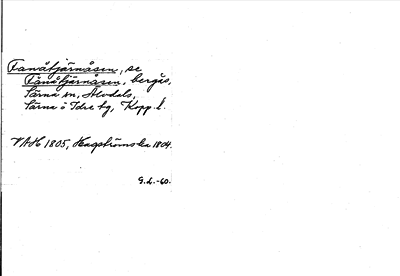 Fanåtjärnåsen, se
Fånåtjärnåsen, bergås,
Särna sn, Älvdals,
Särna o Idre tg, Kopp. l.
VAH 1805, Hagströmska 1804.
G.L.-60.